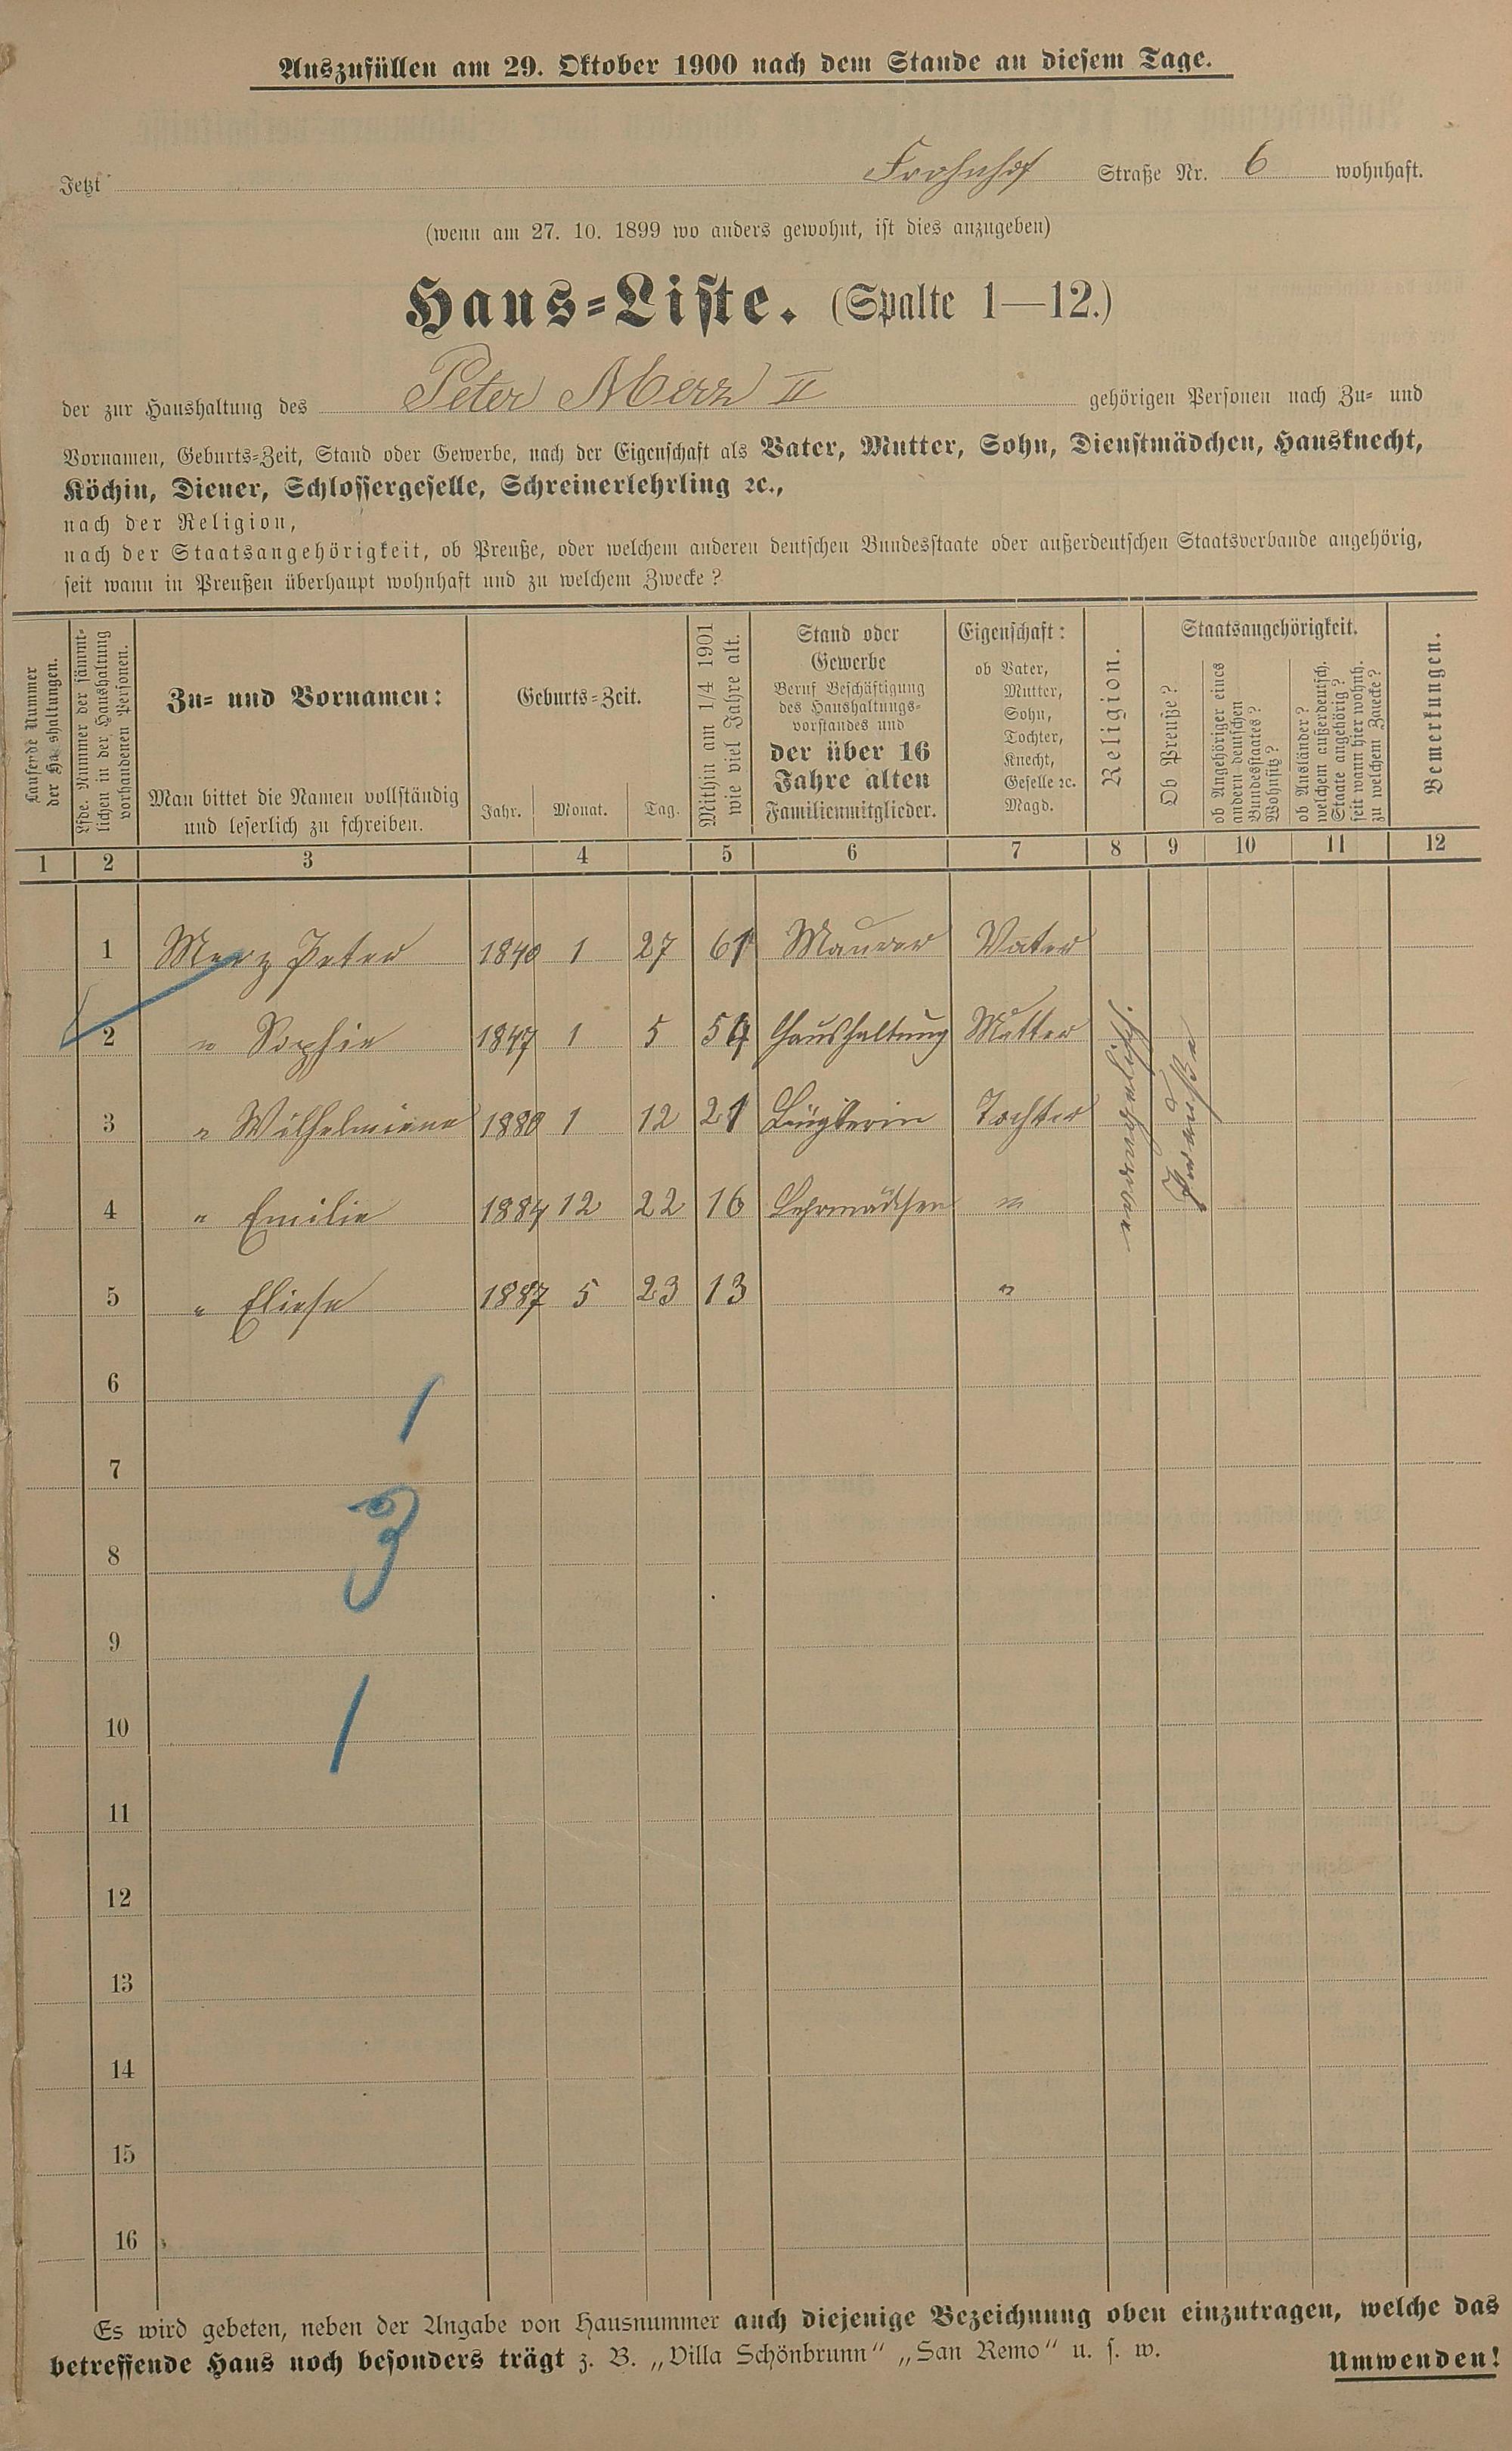 Auszufüllen am 29. Oktober 1900 nach dem Stande an diesem Tage.
Jetzt Frohnhof Straße Nr. 6 wohnhaft.
(wenn am 27. 10. 1899 wo anders gewohnt, ist dies anzugeben)
Haus-Liste. (Spalte 1—12.)
der zur Haushaltung des Peter Merz II gehörigen Personen nach Zu- und
Vornamen, Geburts-Zeit, Stand oder Gewerbe, nach der Eigenschaft als Vater, Mutter, Sohn, Dienstmädchen, Hausknecht,
Köchin, Diener, Schlossergeselle, Schreinerlehrling ꝛc.,
nach der Religion,
nach der Staatsangehörigkeit, ob Preuße, oder welchem anderen deutschen Bundesstaate oder außerdeutschen Staatsverbande angehörig,
seit wann in Preußen überhaupt wohnhaft und zu welchem Zwecke?
Laufende Nummer
der Haushaltungen.
Lfde. Nummer der sämmt-
lichen in der Haushaltung
vorhandenen Personen.
Zu- und Vornamen:
Man bittet die Namen vollständig
und leserlich zu schreiben.
Geburts-Zeit.
Jahr. Monat. Tag.
Mithin am 1/4 1901
wie viel Jahre alt.
Stand oder
Gewerbe
Beruf Beschäftigung
des Haushaltungs-
vorstandes und
der über 16
Jahre alten
Familienmitglieder.
Eigenschaft:
ob Vater,
Mutter,
Sohn,
Tochter,
Knecht,
Geselle ꝛc.
Magd.
Religion.
Staatsangehörigkeit.
Ob Preuße?
ob Angehöriger eines
andern deutschen
Bundesstaates?
Wohnsitz?
ob Ausländer?
welchem außerdeutsch.
Staate angehörig?
seit wann hier wohnh.
zu welchem Zwecke?
Bemerkungen.
1 2 3 4 5 6 7 8 9 10 11 12
1 Merz Peter 1840 1 27 61 Maurer Vater
2 " Sophie 1847 1 5 54 Haushaltung Mutter
3 " Wilhelmiene 1880 1 12 21 Büglerin Tochter
4 " Emilie 1884 12 22 16 Lehrmädchen "
5 " Eliese 1887 5 23 13 "
evangelisch.
Preuße
6
1
7
3
8
9
1
10
11
12
13
14
15
16
Es wird gebeten, neben der Angabe von Hausnummer auch diejenige Bezeichnung oben einzutragen, welche das
betreffende Haus noch besonders trägt z. B. „Villa Schönbrunn“ „San Remo“ u. s. w.
Umwenden!